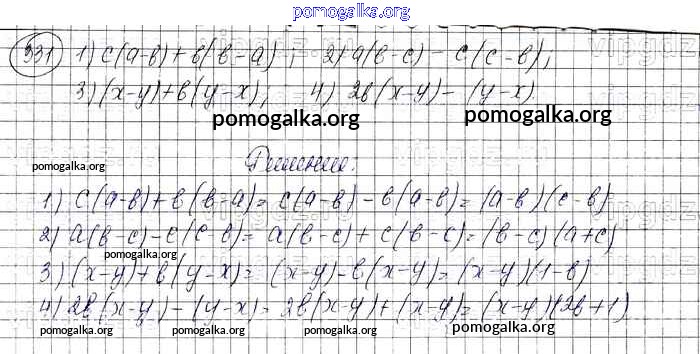 pomogalka.org
331 1) c(a-b)+b(b-a); 2) a(b-c)-c(c-b);
3) (x-y)+b(y-x); 4) 2b(x-y)-(y-x)
pomogalka.org pomogalka.org
pomogalka.org Решение:
1) c(a-b)+b(b-a)=c(a-b)-b(a-b)=(a-b)(c-b)
2) a(b-c)-c(c-b)=a(b-c)+c(b-c)=(b-c)(a+c)
pomogalka.org
3) (x-y)+b(y-x)=(x-y)-b(x-y)=(x-y)(1-b)
4) 2b(x-y)-(y-x)=2b(x-y)+(x-y)=(x-y)(2b+1)
pomogalka.org pomogalka.org pomogalka.org